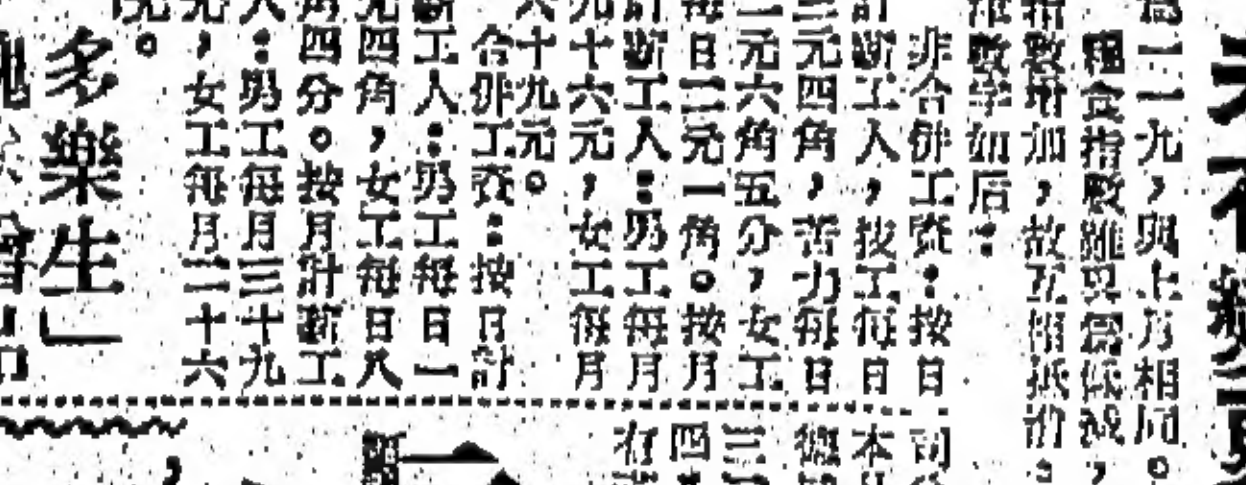 為一一九，與上月相同。
糧食指數雖與
指數增加，故互相抵消。
數字如后：
非合併工資：按日
計薪工人，技工每日
三元四角，苦力每日
二元六角五分，女工
每日二元一角。按月
計薪工人：男工每月
九十六元，女工每月
六十九元。
合併工資：按日計
薪工人：男工每日一
元四角，女工每日八
角四分。按月計薪工
人：男工每月三十九
元，女工每月二十六
元。
多樂生」
司
本
德
三
四
有